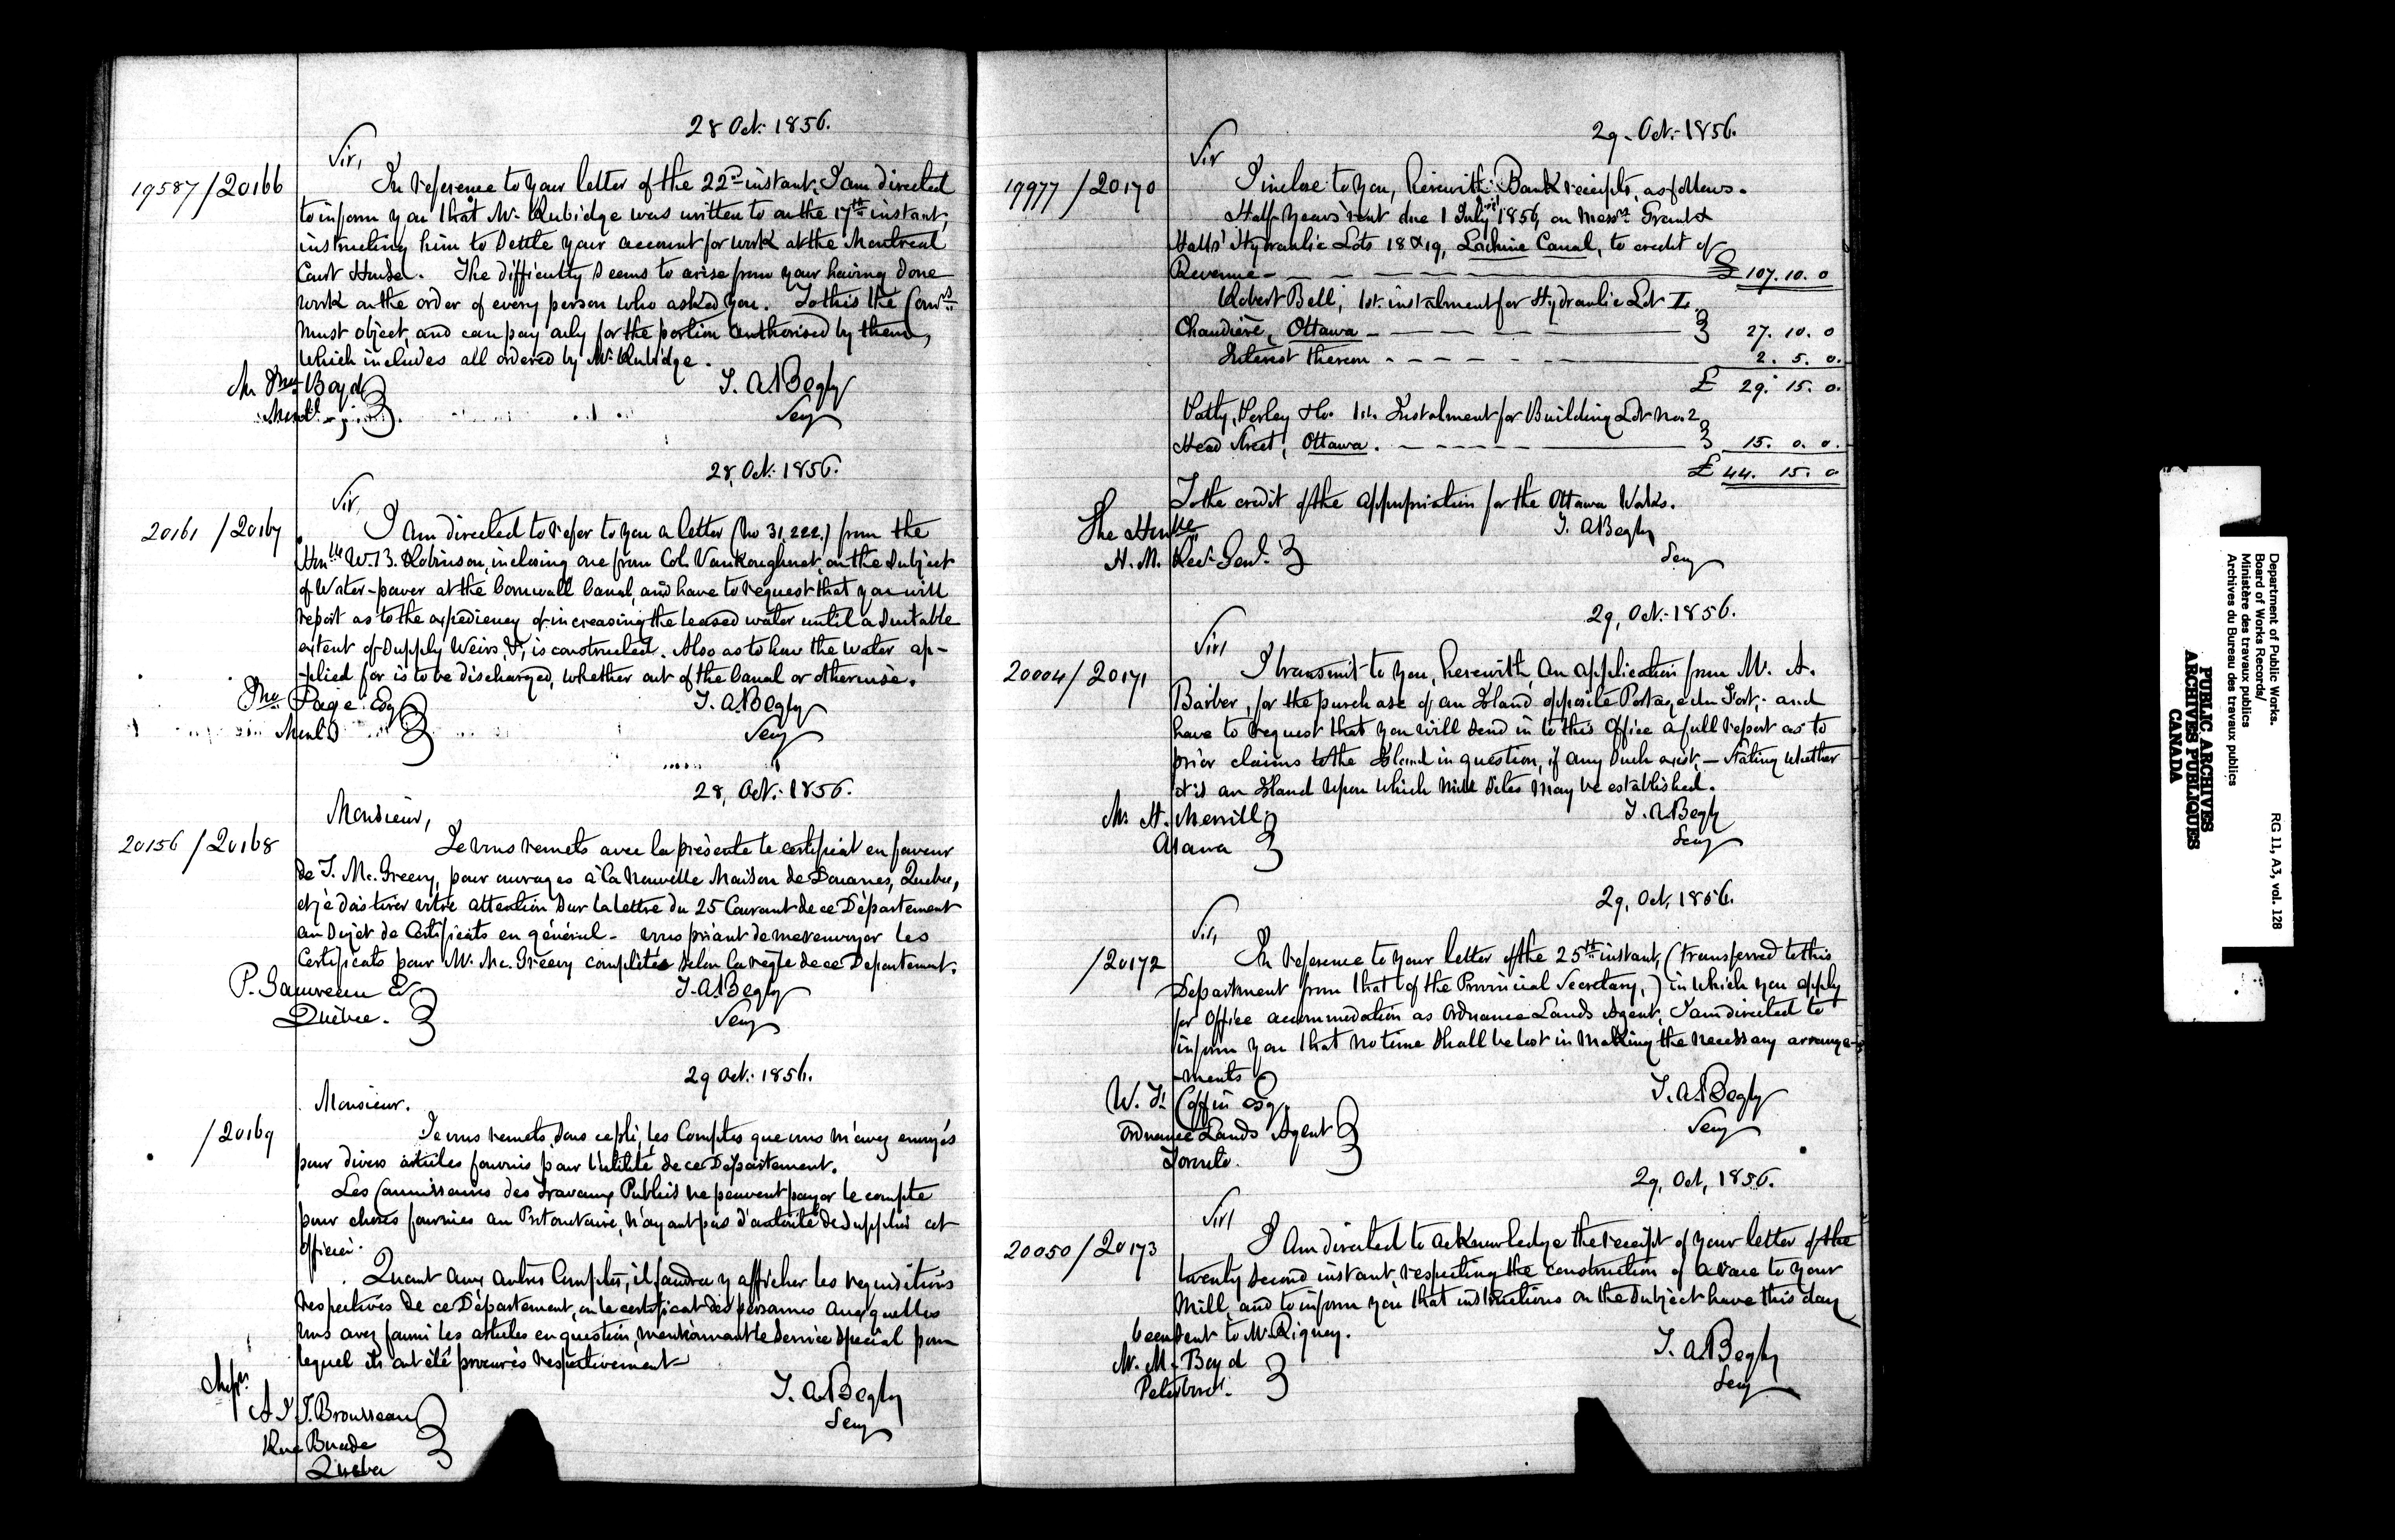 28 Oct. 1856.
Sir,
19587/20166
In reference to your letter of the 22nd instant, I am directed
to inform you that Mr. Rubidge was written to on the 17th instant,
instructing him to settle your account for work at the Montreal
Court House. The difficulty seems to arise from your having done
work on the order of every person who asked you. To this the Comrs
must object, and can pay only for the portion authorised by them,
which includes all ordered by Mr. Rubidge.
Mr Jno Boyd
Montl
T. A. Begly
Secy
28, Oct. 1856.
Sir,
20161/20167
I am directed to refer to you a letter (No 31,222.) from the
Honble W. B. Robinson, inclosing one from Col. VanKoughnet, on the subject
of Water-power at the Cornwall Canal, and have to request that you will
report as to the expediency of increasing the leased water until a suitable
extent of supply Weirs, &c, is constructed. Also as to how the water ap-
-plied for is to be discharged, whether out of the Canal or otherwise.
Jno Page Esq
Montl
T. A. Begly
Secy
28, Oct. 1856.
Monsieur,
20156/20168
Je vous remets avec la présente le certificat en faveur
de T. Mc.Greevy, pour ouvrages à la Nouvelle Maison de Douanes, Quebec,
et je dois tirer votre attention sur la lettre du 25 Courant de ce Département
au sujet de Certificats en général - vous priant de me renvoyer les
Certificats pour Mr. Mc.Greevy complétés selon la règle de ce Departement.
P. Gauvreau Er
Québec.
T. A. Begly
Secy
29 Oct. 1856.
Monsieur.
/20169
Je vous remets, sous ce pli, les Comptes que vous m'avez envoyés
pour divers articles fournis pour l'utilité de ce Département.
Les Commissaires des Travaux Publics ne peuvent payer le compte
pour choses fournies au Protonotaire, n'ayant pas d'autorité de supplier cet
officier.
Quant aux autres Comptes, il faudra y afficher les requisitions
respectives de ce Département, ou le certificat des personnes auxquelles
vous avez fourni les articles en question, mentionnant le service spécial pour
lequel ils ont été procurés respectivement
Messrs
J. T. Brousseau
Rue Buade
Quebec
T. A. Begly
Secy
29. Oct. 1856.
Sir
19977/20170
I inclose to you, herewith Bank receipts, as follows.
Half years' rent due 1 July 1856, on Messrs. Grant &
Halls' Hydraulic Lots 18 & 19, Lachine Canal, to credit of
Revenue - £ 107. 10. 0
Robert Bell, 1st. instalment for Hydraulic Lot I.
Chaudière, Ottawa - 27. 10. 0
Interest thereon - 2. 5. 0.
£ 29. 15. 0.
Perley & Co. 1st. Instalment for Building Lot No. 2
Head Street, Ottawa. - 15. 0. 0.
£ 44. 15. 0
To the credit of the appropriation for the Ottawa Works.
The Honble
H. M. Recr Genl.
T. A. Begly
Secy
29, Oct. 1856.
Sir,
20004/20171
I transmit to you, herewith, an application from Mr. A.
Barber, for the purchase of an Island opposite Portage du Fort, and
have to request that you will send in to this Office a full report as to
prior claims to the Island in question, if any such exist, - stating whether
it is an Island upon which mill sites may be established.
Mr. H. Merrill,
Ottawa
T. A. Begly
Secy
29, Oct, 1856.
Sir,
/20172
In reference to your letter of the 25th instant, (transferred to this
Department from that of the Provincial Secretary,) in which you apply
for Office accommodation as Ordnance Lands Agent, I am directed to
inform you that no time shall be lost in making the necessary arrange-
-ments
W. F. Coffin Esq.
Ordnance Lands Agent
Toronto.
T. A. Begly
Secy
29, Oct, 1856.
Sir,
20050/20173
I am directed to acknowledge the receipt of your letter of the
twenty second instant, respecting the construction of a race to your
Mill, and to inform you that instructions on the subject have this day
been sent to Mr. Rigney.
Mr. M. Boyd
Peterboro'.
T. A. Begly
Secy
Department of Public Works.
Board of Works Records/
Ministère des travaux publics
Archives du Bureau des travaux publics
RG 11, A3, vol. 128
PUBLIC ARCHIVES
ARCHIVES PUBLIQUES
CANADA